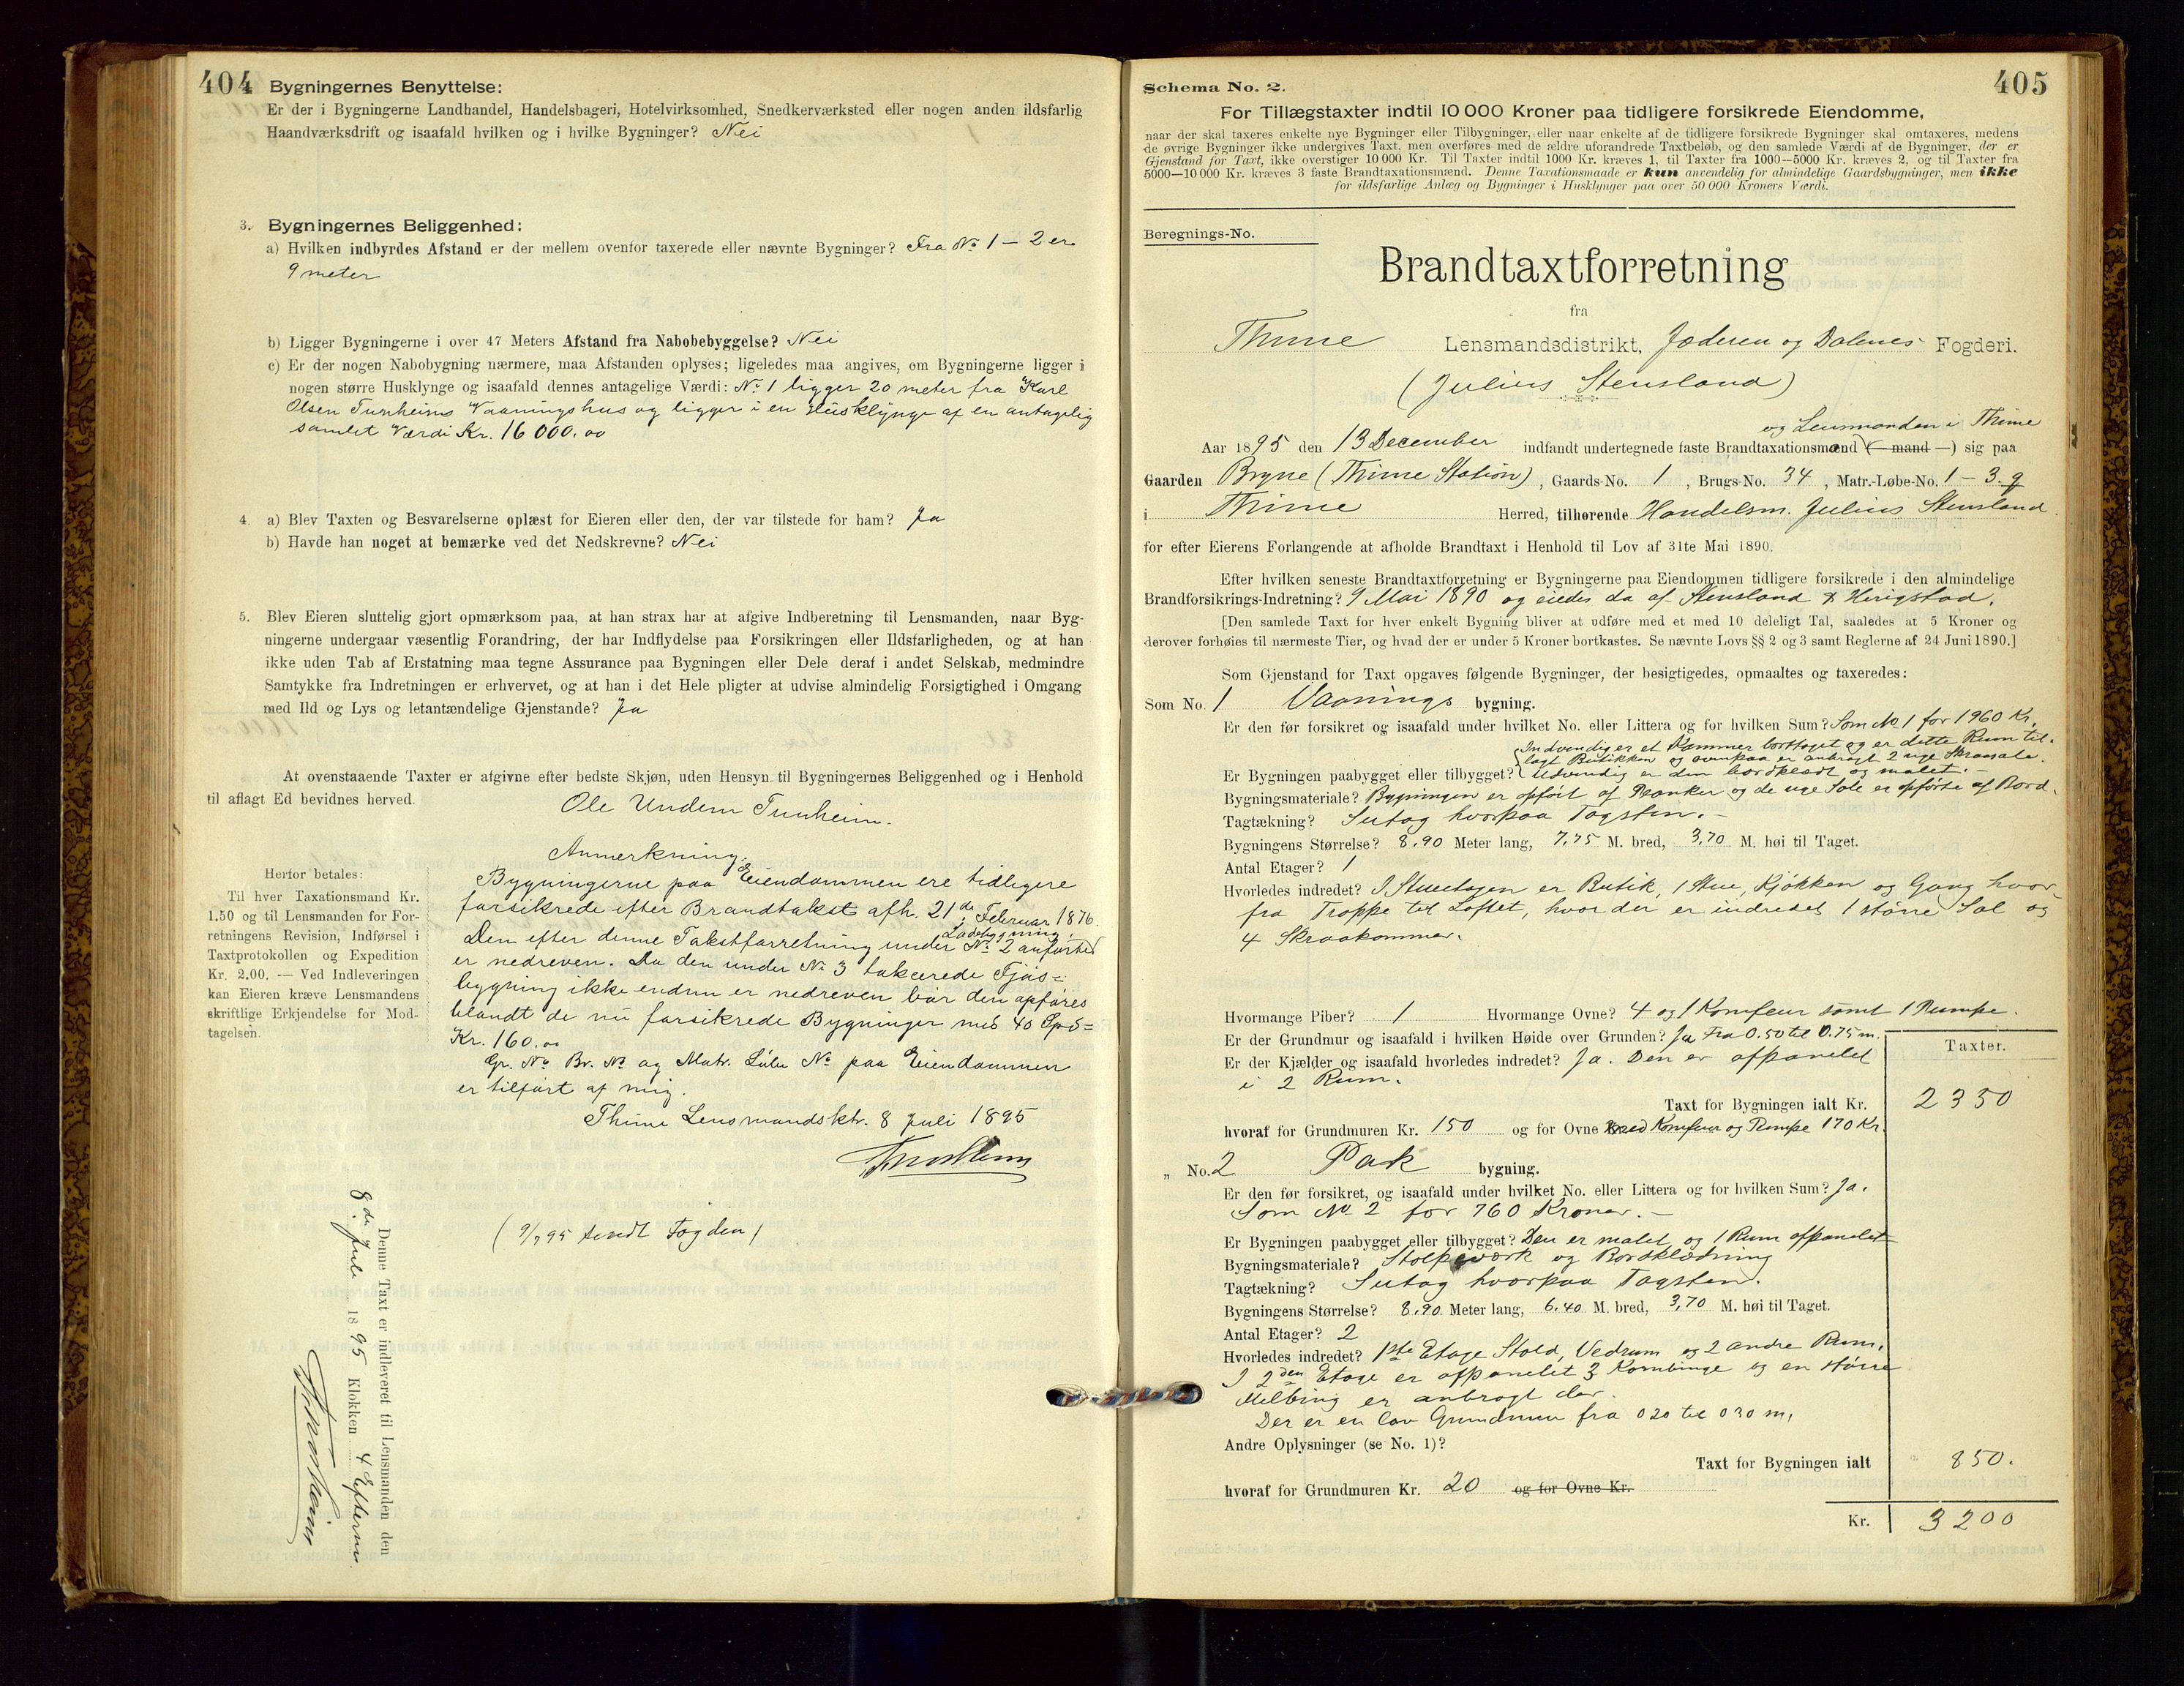 404
Bygningernes Benyttelse:
Er der i Bygningerne Landhandel, Handelsbageri, Hotelvirksomhed, Snedkerværksted eller nogen anden ildsfarlig
Haandværksdrift og isaafald hvilken og i hvilke Bygninger? Nei
3. Bygningernes Beliggenhed:
a) Hvilken indbyrdes Afstand er der mellem ovenfor taxerede eller nævnte Bygninger? Fra No 1 – 2 er
9 meter
b) Ligger Bygningerne i over 47 Meters Afstand fra Nabobebyggelse? Nei
c) Er der nogen Nabobygning nærmere, maa Afstanden oplyses; ligeledes maa angives, om Bygningerne ligger i
nogen større Husklynge og isaafald dennes antagelige Værdi: No 1 ligger 20 meter fra Karl
Olsen Tunheims Vaaningshus og ligger i en Husklynge af en antagelig
samlet Værdi Kr. 16 000.00
4. a) Blev Taxten og Besvarelserne oplæst for Eieren eller den, der var tilstede for ham? Ja
b) Havde han noget at bemærke ved det Nedskrevne? Nei
5. Blev Eieren sluttelig gjort opmærksom paa, at han strax har at afgive Indberetning til Lensmanden, naar Byg-
ningerne undergaar væsentlig Forandring, der har Indflydelse paa Forsikringen eller Ildsfarligheden, og at han
ikke uden Tab af Erstatning maa tegne Assurance paa Bygningen eller Dele deraf i andet Selskab, medmindre
Samtykke fra Indretningen er erhvervet, og at han i det Hele pligter at udvise almindelig Forsigtighed i Omgang
med Ild og Lys og letantændelige Gjenstande? Ja
At ovenstaaende Taxter er afgivne efter bedste Skjøn, uden Hensyn til Bygningernes Beliggenhed og i Henhold
til aflagt Ed bevidnes herved.
Ole Undem Tunheim.
Anmerkning.
Bygningerne paa Eiendommen ere tidligere
forsikrede efter Brandtakst afh. 21de Februar 1876.
Den efter denne Takstforretning under No 2 anførte Ladebygning
er nedreven. Da den under No 3 takserede Fjøs=
bygning ikke endnu er nedreven bør den opføres
blandt de nu forsikrede Bygninger med 40 Spd =
Kr. 160.00
Gr. No Br. No og Matr. Løbe No paa Eiendommen
er tilført af mig.
Thime Lensmandsktr. 8 Juli 1895
Herfor betales:
Til hver Taxationsmand Kr.
1.50 og til Lensmanden for For-
retningens Revision, Indførsel i
Taxtprotokollen og Expedition
Kr. 2.00. — Ved Indleveringen
kan Eieren kræve Lensmandens
skriftlige Erkjendelse for Mod-
tagelsen.
(9/7 95 sendt Fogden)
Denne Taxt er indleveret til Lensmanden den
8de Juli 1895 Klokken 4 Efterm.
405
Schema No. 2.
For Tillægstaxter indtil 10 000 Kroner paa tidligere forsikrede Eiendomme,
naar der skal taxeres enkelte nye Bygninger eller Tilbygninger, eller naar enkelte af de tidligere forsikrede Bygninger skal omtaxeres, medens
de øvrige Bygninger ikke undergives Taxt, men overføres med de ældre uforandrede Taxtbeløb, og den samlede Værdi af de Bygninger, der er
Gjenstand for Taxt, ikke overstiger 10 000 Kr. Til Taxter indtil 1000 Kr. kræves 1, til Taxter fra 1000—5000 Kr. kræves 2, og til Taxter fra
5000—10 000 Kr. kræves 3 faste Brandtaxationsmænd. Denne Taxationsmaade er kun anvendelig for almindelige Gaardsbygninger, men ikke
for ildsfarlige Anlæg og Bygninger i Husklynger paa over 50 000 Kroners Værdi.
Beregnings-No.
Brandtaxtforretning
fra
Thime Lensmandsdistrikt, Jæderen og Dalenes Fogderi.
(Julius Stensland)
og Lensmanden i Thime
Aar 1895 den 13 December indfandt undertegnede faste Brandtaxationsmænd (— mand —) sig paa
Gaarden Bryne (Thime Station), Gaards-No. 1, Brugs-No. 34, Matr.-Løbe-No. 1 – 3. g
i Thime Herred, tilhørende Handelsm. Julius Stensland.
for efter Eierens Forlangende at afholde Brandtaxt i Henhold til Lov af 31te Mai 1890.
Efter hvilken seneste Brandtaxtforretning er Bygningerne paa Eiendommen tidligere forsikrede i den almindelige
Brandforsikrings-Indretning? 9 Mai 1890 og eiedes da af Stensland & Herigstad.
[Den samlede Taxt for hver enkelt Bygning bliver at udføre med et med 10 deleligt Tal, saaledes at 5 Kroner og
derover forhøies til nærmeste Tier, og hvad der er under 5 Kroner bortkastes. Se nævnte Lovs §§ 2 og 3 samt Reglerne af 24 Juni 1890.]
Som Gjenstand for Taxt opgaves følgende Bygninger, der besigtigedes, opmaaltes og taxeredes:
Som No. 1 Vaanings bygning.
Er den før forsikret og isaafald under hvilket No. eller Littera og for hvilken Sum? Som No 1 for 1960 Kr.
Indvendig er et Kammer borttaget og er dette Rum til-
lagt Butikken og ovenpaa er anbragt 2 nye Skraasale.
Er Bygningen paabygget eller tilbygget? Udvendig er den bordklædt og malet. –
Bygningsmateriale? Bygningen er opført af Planker og de nye Sale er opførte af Bord.
Tagtækning? Sutag hvorpaa Tagsten. –
Bygningens Størrelse? 8.90 Meter lang, 7.75 M. bred, 3.70 M. høi til Taget.
Antal Etager? 1
Hvorledes indredet? I Stueetagen er Butik, 1 Stue, Kjøkken og Gang hvor
fra Trappe til Loftet, hvor der er indredet 1 større Sal og
4 Skraakammer.
Hvormange Piber? 1 Hvormange Ovne? 4 og 1 Komfeur samt 1 Pumpe.
Er der Grundmur og isaafald i hvilken Høide over Grunden? Ja Fra 0.50 til 0.75 m.
Er der Kjælder og isaafald hvorledes indredet? Ja. Den er afpanelet
i 2 Rum.
Taxter.
Taxt for Bygningen ialt Kr. 2350
hvoraf for Grundmuren Kr. 150 og for Ovne med Komfeur og Pumpe 170 Kr.
„ No. 2 Pak bygning.
Er den før forsikret, og isaafald under hvilket No. eller Littera og for hvilken Sum? Ja.
Som No 2 for 760 Kroner. –
Er Bygningen paabygget eller tilbygget? Den er malet og 1 Rum afpanelet
Bygningsmateriale? Stolpeværk og Bordklædning
Tagtækning? Sutag hvorpaa Tagsten.
Bygningens Størrelse? 8.90 Meter lang, 6.40 M. bred, 3,70 M. høi til Taget.
Antal Etager? 2
Hvorledes indredet? 1ste Etage Stald, Vedrum og 2 andre Rum.
I 2den Etage er afpanelet 3 Kornbinge og en større
Melbing er anbragt der.
Der er en lav Grundmur fra 0 20 til 0 30 m.
Andre Oplysninger (se No. 1)?
Taxt for Bygningen ialt 850.
hvoraf for Grundmuren Kr. 20 og for Ovne Kr.
Kr. 3200